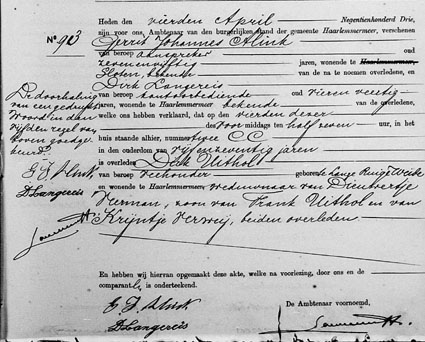 Heden den vierden April Negentienhonderd Drie,
No. 93 zijn voor ons, Ambtenaar van den burgerlijken stand der gemeente Haarlemmermeer, verschenen
Gerrit Johannes Alink oud
zevenenvijftig jaren, van beroep aanspreker wonende te Haarlemmermeer,
Sloten, bekende van de na te noemen overledene, en
Dirk Langereis oud
van beroep kantoorbediende vierenveertig
jaren, wonende te Haarlemmermeer bekende van de overledene,
welke ons hebben verklaard, dat op vierden dezer
des voormiddags ten half zeven ure, in het
huis staande alhier, nummer CC
in den ouderdom van vijfenzeventig jaren
is overleden Dirk Uithol
van beroep veehouder geboren te Lange Ruige Weide
en wonende te Haarlemmermeer, weduwnaar van Dieuwertje
Herman, zoon van Frank Uithol en van
Krijntje Verweij, beiden overleden
De doorhaling
van een gedrukt
woord in den
vijfden regel van
boven goedge-
keurd.
G J Alink
D Langereis
En hebben wij hiervan opgemaakt deze akte, welke na voorlezing, door ons en de
comparanten is onderteekend.
G J Alink
D Langereis
De Ambtenaar voornoemd,